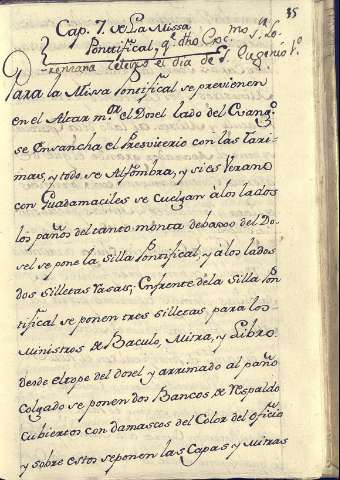 35
Cap. 7. de La Missa
Pontifical, q.e dho Exc.mo S.r Lo-
renzana celebró el dia de S. Eugenio 1.º
Para la Missa Pontifical se previenen
en el Altar m.or el Dosel lado del Evang.º
se ensancha el Presviterio con las Tari-
mas, y todo se Alfombra, y si es Verano
con Guadamaciles se cuelgan à los lados
los paños del tanto monta debaxo del Do-
sel se pone la Silla Pontifical, y à los lados
dos Silletas Vasas; Enfrente de la Silla Pon
tifical se ponen tres silletas para los
Ministros de Baculo, Mitra, y Libro
desde el tope del dosel y arrimado al paño
Colgado se ponen dos Bancos de Respaldo
cubiertos con damascos del Color del oficio
y sobre estos se ponen las Capas, y Mitras